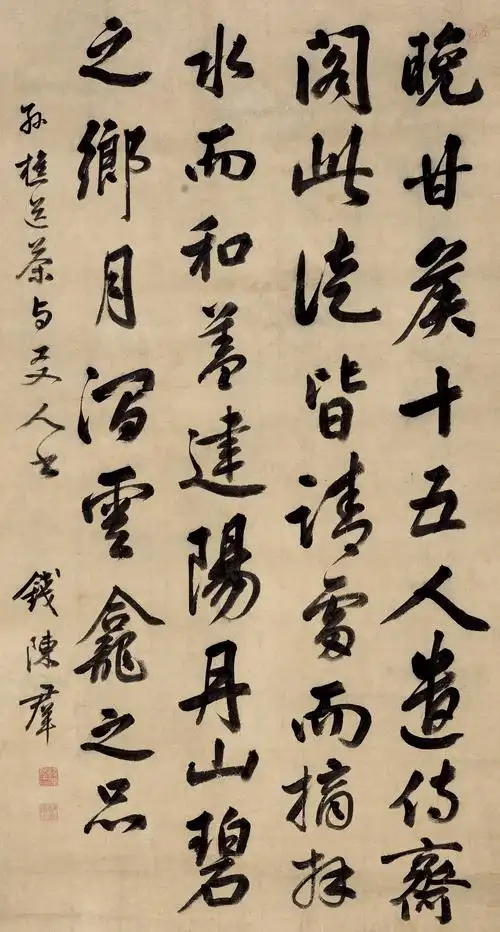 晚甘侯十五人遣侍齋
閣此徒皆請雷而摘拜
水而和蓋建陽丹山碧
之鄉月澗雲龕之品
孫樵送茶与友人書
錢陳羣